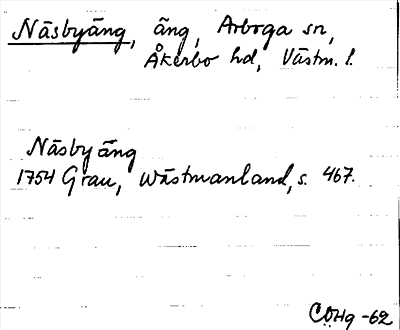 Näsbyäng, äng, Arboga sn,
Åkerbo hd, Västm. l.
Näsbyäng
1754 Grau, Wästmanland, s. 467.
COHg -62